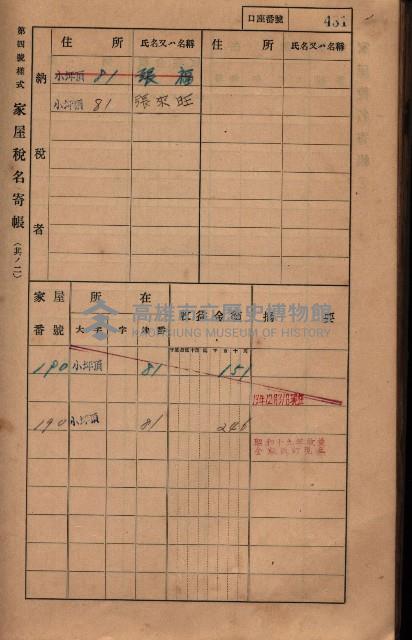 口座番號 431
第四號樣式 家屋稅名寄帳 (其ノ二)
納稅者
住所 氏名又ハ名稱 住所 氏名又ハ名稱
小坪頂 81 張福
小坪頂 81 張來旺
家屋番號 所在 賦課金額 摘要
大字 字 地番
高雄市立歷史博物館
KAOHSIUNG MUSEUM OF HISTORY
190 小坪頂 81 151
190 小坪頂 81 246
昭和十九年